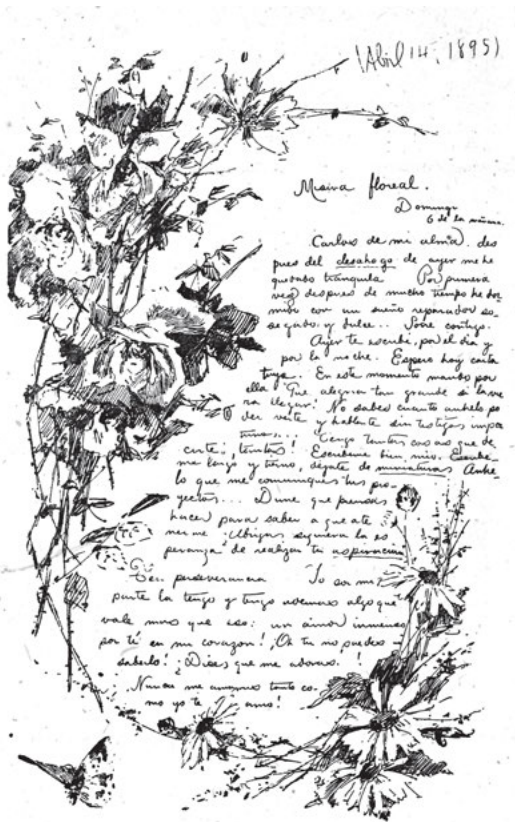 (Abril 14, 1895)
Misiva floreal.
Domingo
6 de la mañana
Carlos de mi alma. des
pues del desahogo de ayer me he
quedado tranquila Por primera
vez despues de mucho tiempo he dor
mido con un sueño reparador so
segado y dulce.. Soñe contigo.
Ayer te escribí, por el dia y
por la noche. Espero hoy carta
tuya. En este momento mando por
ella Que alegria tan grande si la vie
ra llegar! No sabes cuanto anhelo po
der verte y hablarte sin testigos impor
tunos... Tengo tantas cosas que de
cirte, tantas! Escribeme bien mio. Escribe
me largo y tierno, déjate de miniaturas Anhe
lo que me comuniques tus pro
yectos... Dime que piensas
hacer para saber a que ate
nerme ¿Abrigas siquiera la es
peranza de realizar tu aspiracion
Ten perseverancia Yo por mi
parte la tengo y tengo ademas algo que
vale mas que eso: un amor inmenso
por tí en mi corazon! ¡Oh tu no puedes
saberlo! ¡Dices que me adoras!
Nunca me amaras tanto co
mo yo te amo!